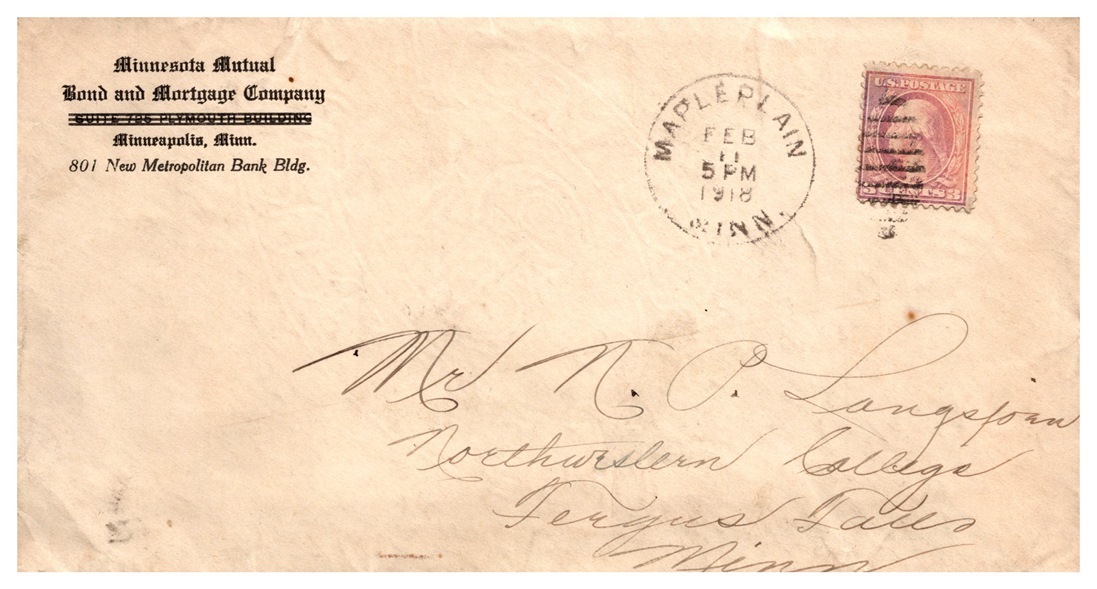 Minnesota Mutual
Bond and Mortgage Company
SUITE 725 PLYMOUTH BUILDING
Minneapolis, Minn.
801 New Metropolitan Bank Bldg.
MAPLE PLAIN
FEB
11
5 PM
1918
MINN.
U.S. POSTAGE
3 CENTS 3
Mr N. P. Langsjoen
Northwestern College
Fergus Falls
Minn